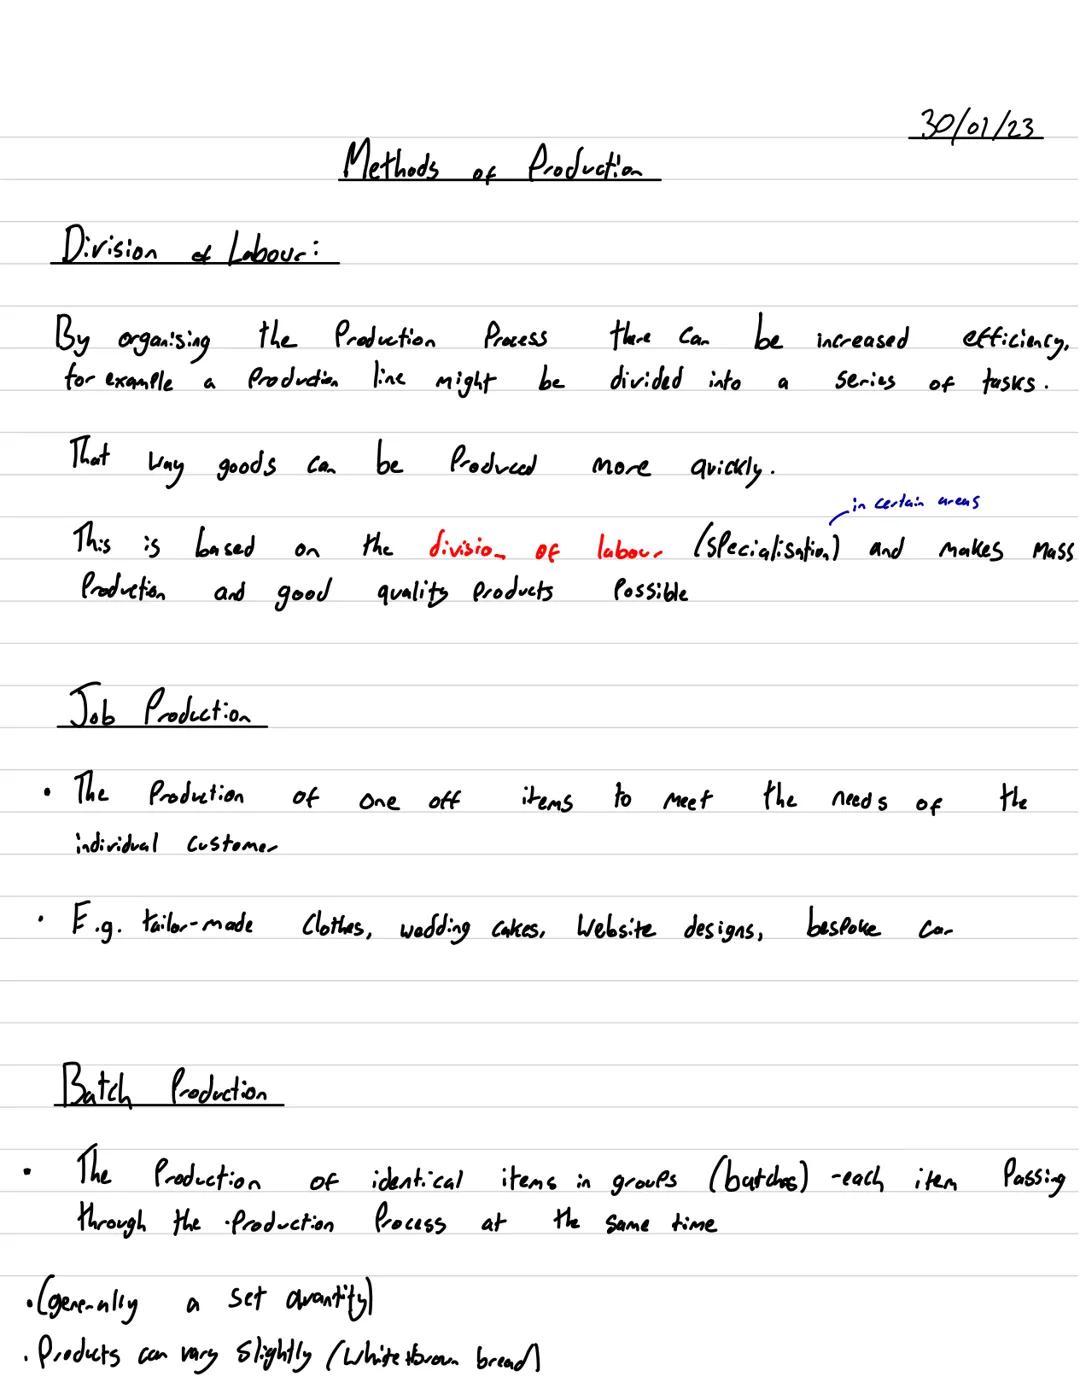 30/01/23
Methods of Production
Division of Labour:
By organising the Production Process there can be increased efficiency,
for example a Production line might be divided into a series of tasks.
That way goods can be Produced more quickly.
in certain areas
This is based on the division of labour (Specialisation) and makes Mass
Production and good quality Products Possible
Job Production
• The Production of one off items to meet the needs of the
individual customer
• E.g. tailor-made Clothes, wedding cakes, Website designs, bespoke car
Batch Production
• The Production of identical items in groups (batches) -each item Passing
through the Production Process at the same time
• (generally a set quantity)
• Products can vary slightly (white + brown bread)